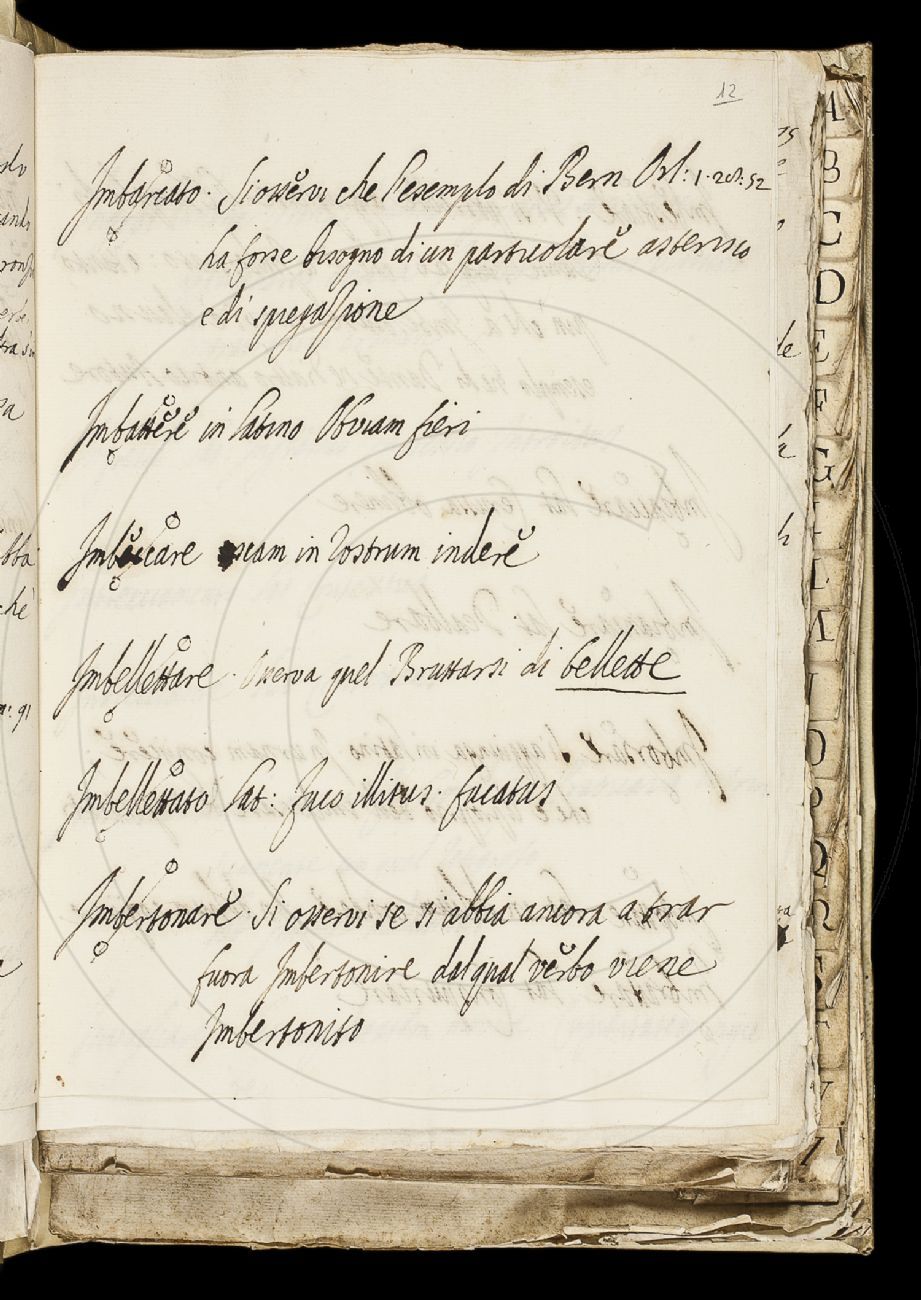 12
Imbarcato. Si osservi che l'esemplo di Bern Orl: 1. 28. 52
ha forse bisogno di un particolare asterisco
e di spiegazione
Imbattere in latino Obviam fieri
Imbeccare escam in rostrum indere
Imbellettare. Osserva quel Bruttarsi di bellette
Imbellettato Lat: fuco illitus. fucatus
Imbertonare. Si osservi se si abbia ancora a trar
fuora Imbertonire dal qual verbo viene
Imbertonito
A
B
C
D
E
F
G
I
L
M
N
O
P
Q
R
S
T
V
Z